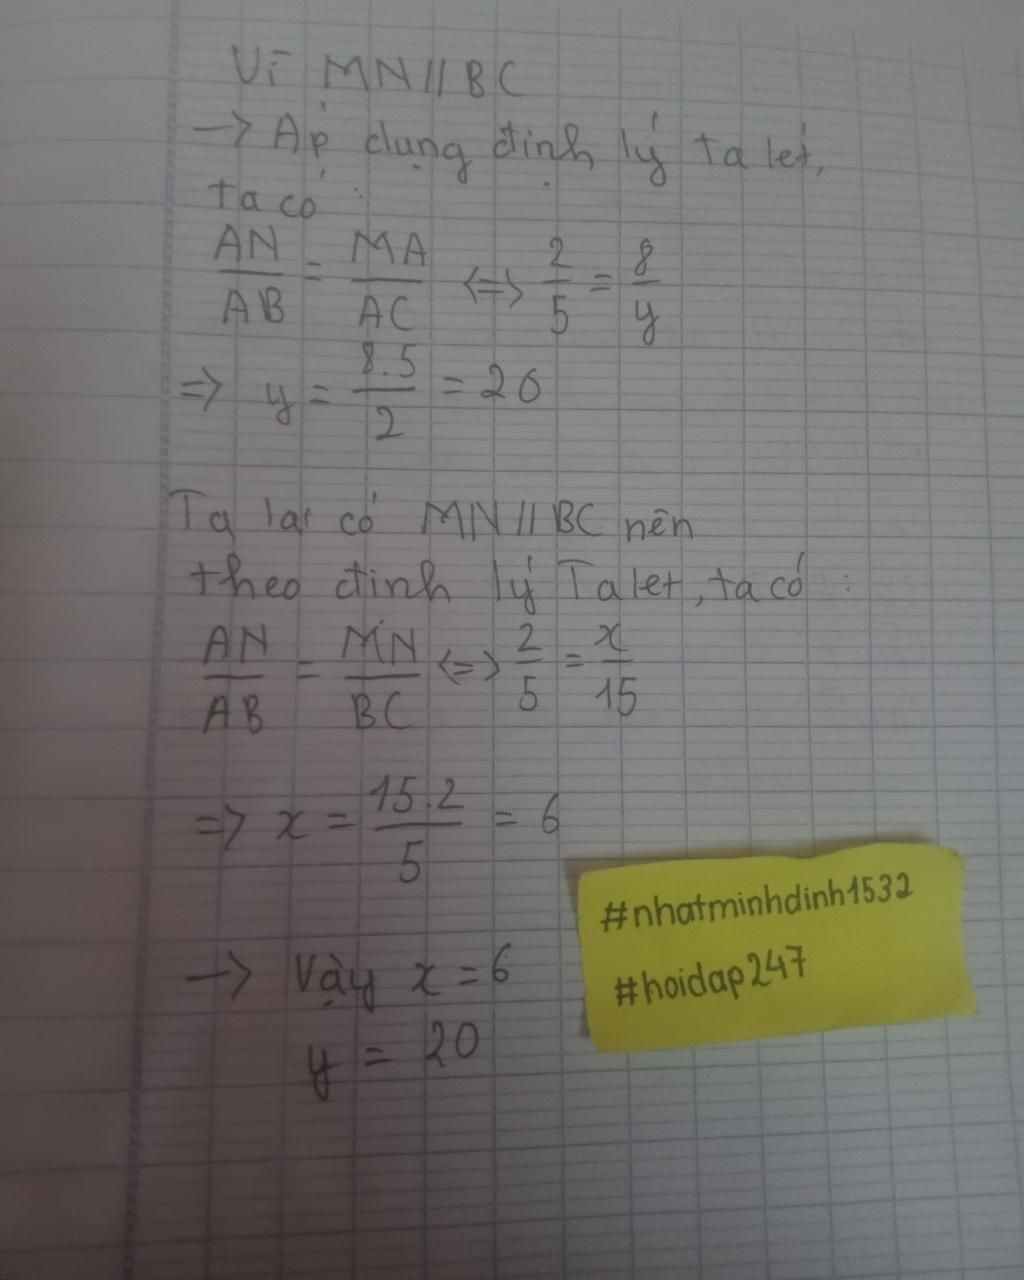 Vì MN // BC
-> Áp dụng định lý ta lét,
ta có :
AN/AB = MA/AC <=> 2/5 = 8/y
=> y = 8.5/2 = 20
Ta lại có MN // BC nên
theo định lý Talet, ta có :
AN/AB = MN/BC <=> 2/5 = x/15
=> x = 15.2/5 = 6
-> Vậy x = 6
y = 20
#nhatminhdinh1532
#hoidap247